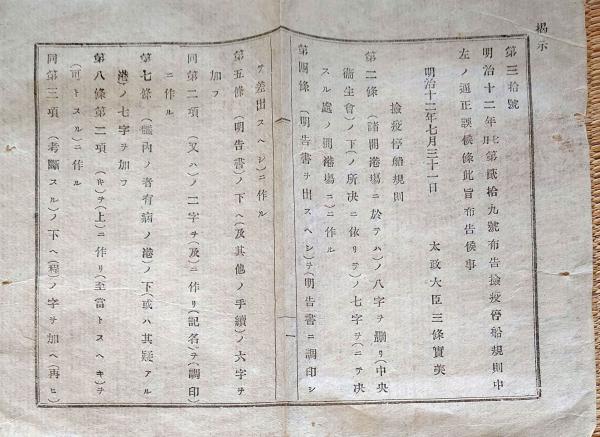 揭示
第三拾號
明治十二年七月第貳拾九號布告撿疫停船規則中
左ノ通正誤候條此旨布告候事
明治十二年七月三十一日
太政大臣三條實美
撿疫停船規則
第二條(諸開港塲ニ於テハ)ノ八字ヲ刪リ(中央
衞生會)ノ下(ノ所决ニ依リテ)ノ七字ヲ(ニテ决
スル處ノ開港塲ニ)ニ作ル
第四條(明告書ヲ出スヘシ)ヲ(明告書ニ調印シ
テ差出スヘシ)ニ作ル
第五條(明告書)ノ下ヘ(及其他ノ手續)ノ六字ヲ
加フ
同第二項(又ハ)ノ二字ヲ(及)ニ作リ(記名)ヲ(調印)
ニ作ル
第七條(艦內ノ者有病ノ港)ノ下(或ハ其疑アル
港ノ七字ヲ加フ
第八條第二項(キ)ヲ(上)ニ作リ(至當トスヘキ)ヲ
(可トスル)ニ作ル
同第三項(考斷スル)ノ下ヘ(程)ノ字ヲ加ヘ(再ヒ)